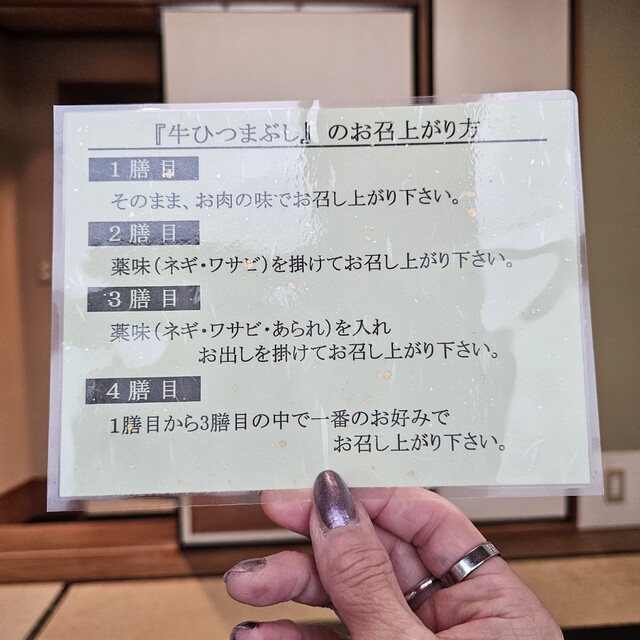 『牛ひつまぶし』のお召上がり方
1膳目
そのまま、お肉の味でお召し上がり下さい。
2膳目
薬味(ネギ・ワサビ)を掛けてお召し上がり下さい。
3膳目
薬味(ネギ・ワサビ・あられ)を入れ
お出しを掛けてお召し上がり下さい。
4膳目
1膳目から3膳目の中で一番のお好みで
お召し上がり下さい。